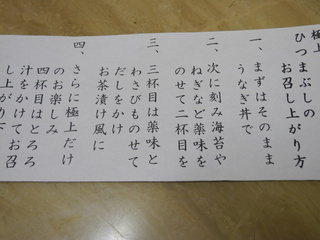 極上
ひつまぶしの
お召し上がり方
一、まずはそのまま
うなぎ丼で
二、次に刻み海苔や
ねぎなど薬味を
のせて二杯目を
三、三杯目は薬味と
わさびものせて
だしをかけ
お茶漬け風に
四、さらに極上だけ
のお楽しみ
四杯目はとろろ
汁をかけてお召
し上がり下